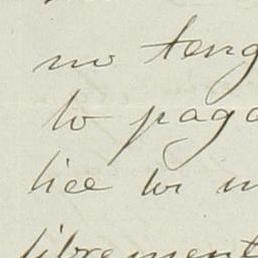 no teng
lo paga
hice lo
librement